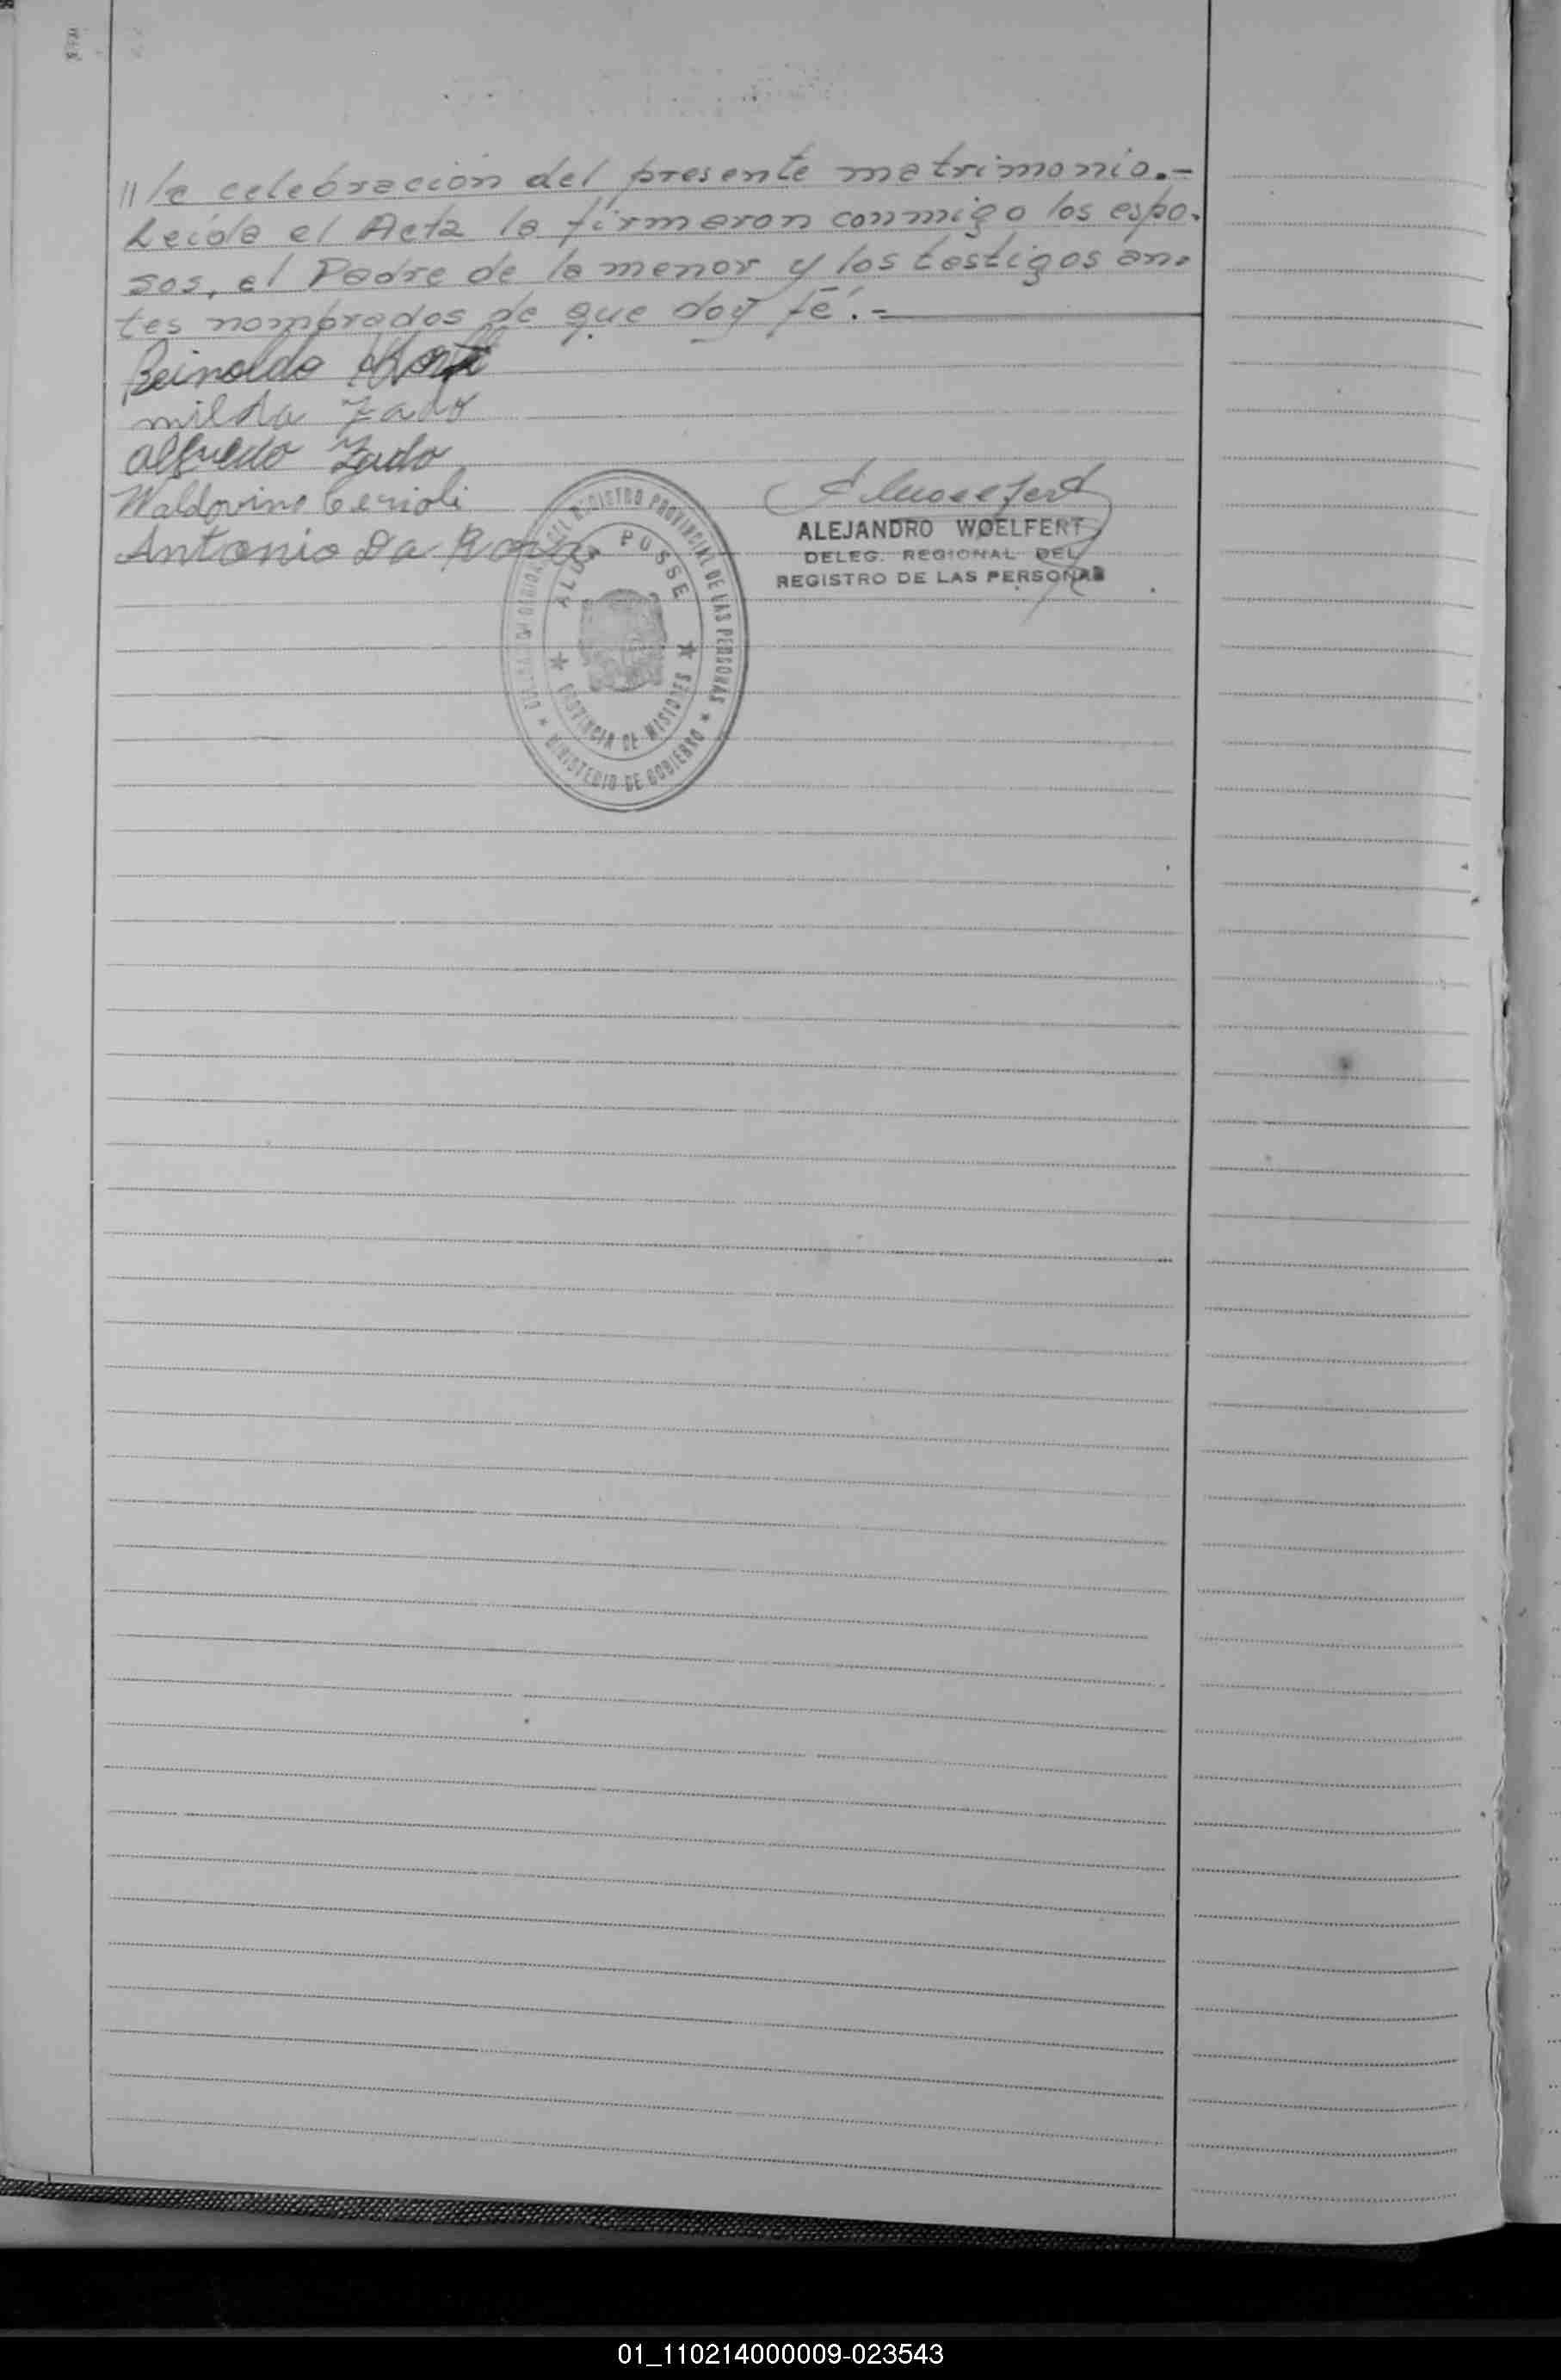 // la celebración del presente matrimonio.-
Leída el Acta la firmaron conmigo los espo-
sos, el Padre de la menor y los testigos an-
tes nombrados de que doy fé.-
Reinoldo
milda Zado
alfredo Zado
Waldovino Cerioli
Antonio Da
ALEJANDRO WOELFERT
DELEG. REGIONAL DEL
REGISTRO DE LAS PERSONAS
DEL REGISTRO PROVINCIAL DE LAS PERSONAS
ALBA POSSE
PROVINCIA DE MISIONES
MINISTERIO DE GOBIERNO
01_110214000009-023543